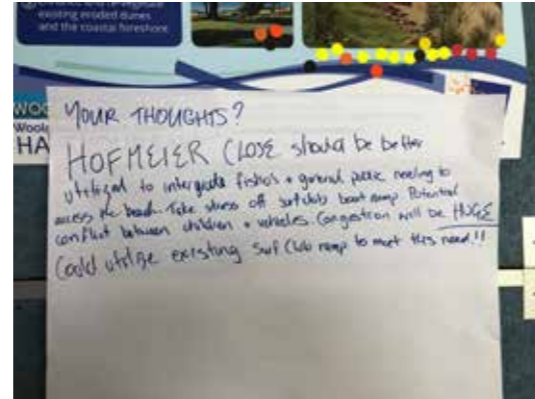 existing eroded dunes
and the coastal foreshore
WOO
Woolg
HA
YOUR THOUGHTS?
HOFMEIER CLOSE should be better
utilized to intergrate fisho's + general public needing to
access the beach. Take stress off surfclub boat ramp. Potential
conflict between children + vehicles. Congestion will be HUGE
Could utilize existing Surf Club ramp to meet this need!!